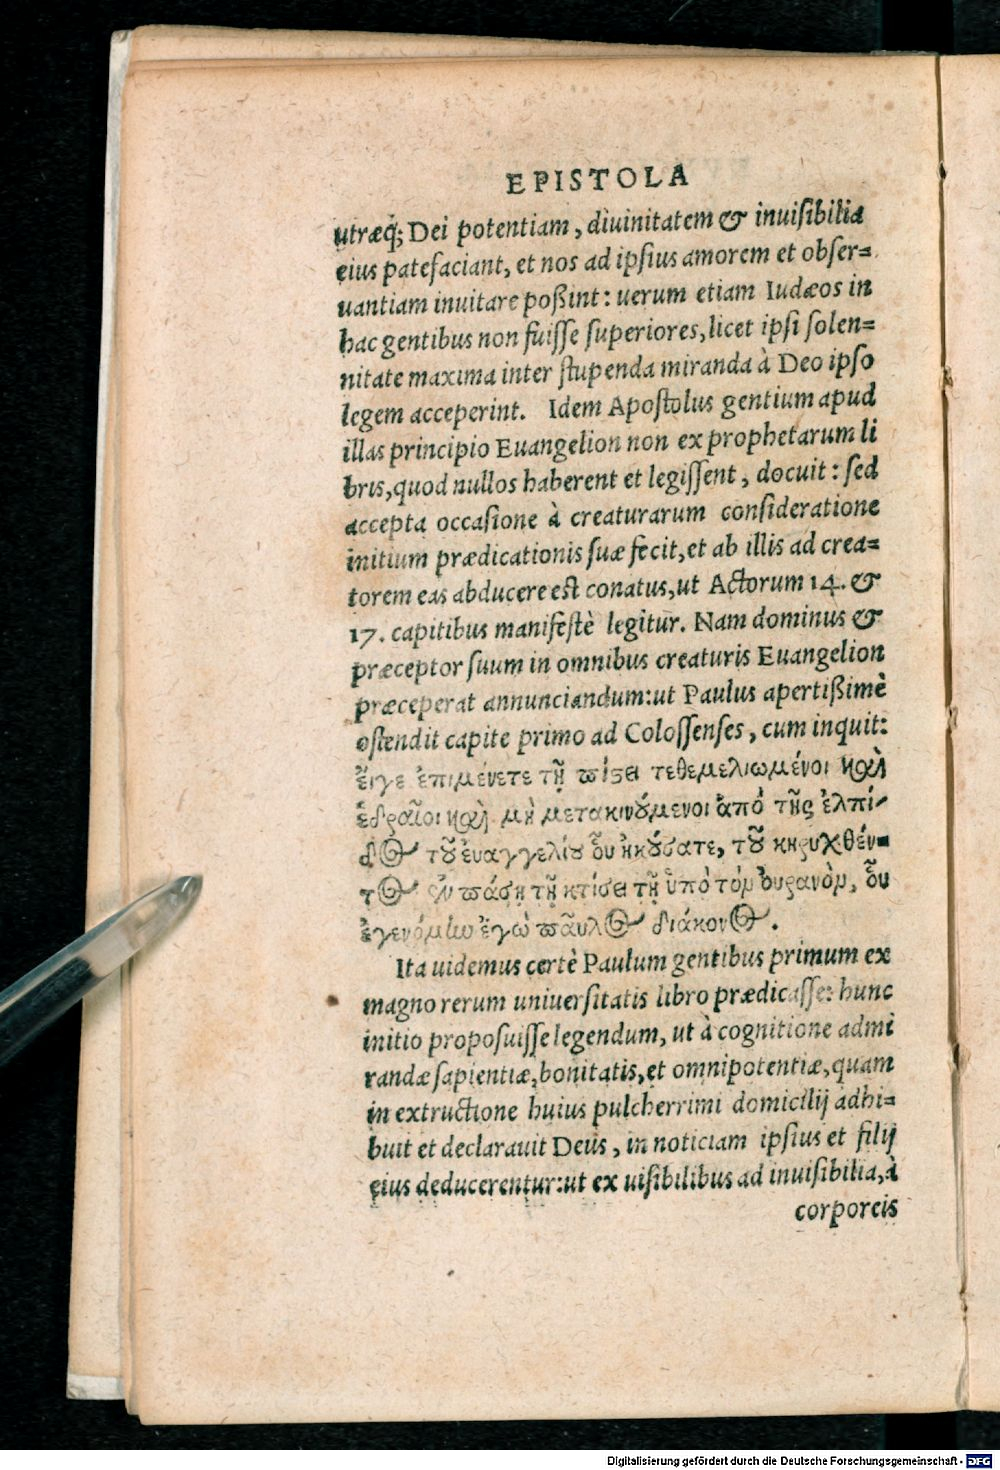 EPISTOLA
utræq́; Dei potentiam, diuinitatem & inuisibilia
eius patefaciant, et nos ad ipsius amorem et obser=
uantiam inuitare poßint: uerum etiam Iudæos in
hac gentibus non fuisse superiores, licet ipsi solen=
nitate maxima inter stupenda miranda à Deo ipso
legem acceperint. Idem Apostolus gentium apud
illas principio Euangelion non ex prophetarum li
bris, quod nullos haberent et legissent, docuit: sed
accepta occasione à creaturarum consideratione
initium prædicationis suæ fecit, et ab illis ad crea=
torem eas abducere est conatus, ut Actorum 14. &
17. capitibus manifestè legitur. Nam dominus &
præceptor suum in omnibus creaturis Euangelion
præceperat annunciandum: ut Paulus apertißimè
ostendit capite primo ad Colossenses, cum inquit:
ἔιγε ἐπιμένετε τῇ πίϛει τεθεμελιωμένοι καὶ
ἑδραῖοι καὶ μὴ μετακινούμενοι ἀπὸ τῆς ἐλπί-
δος τοῦ ἐυαγγελίου οὗ ἠκούσατε, τοῦ κηρυχθέν=
τος ἐν πάσῃ τῇ κτίσει τῇ ὑπὸ τὸν ὀυρανὸν, οὗ
ἐγενόμην ἐγὼ παῦλος διάκονος.
Ita uidemus certè Paulum gentibus primum ex
magno rerum uniuersitatis libro prædicasse: hunc
initio proposuisse legendum, ut à cognitione admi
randæ sapientiæ, bonitatis, et omnipotentiæ, quam
in extructione huius pulcherrimi domicilij adhi=
buit et declarauit Deus, in noticiam ipsius et filij
eius deducerentur: ut ex uisibilibus ad inuisibilia, à
corporeis
Digitalisierung gefördert durch die Deutsche Forschungsgemeinschaft - DFG